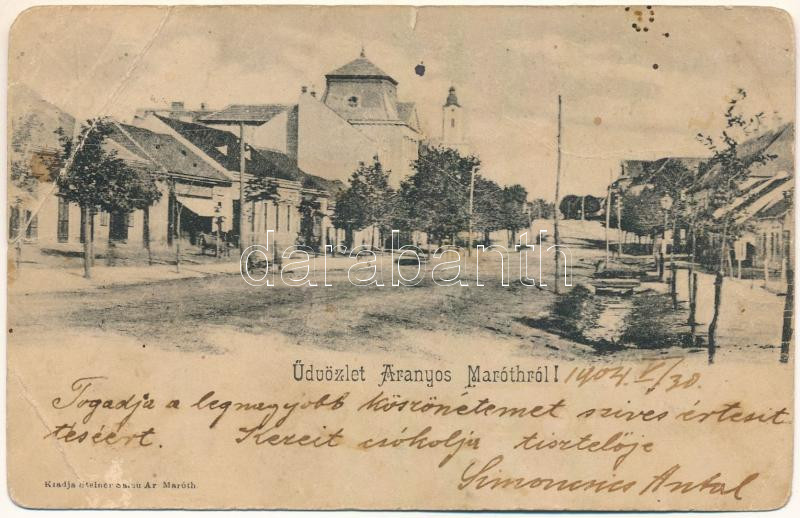 darabanth.com
Üdvözlet Aranyos Maróthról! 1904 V/30.
Fogadja a legnagyobb köszönetemet szives értesit
téséért. Kezeit csókolja tisztelője
Simoncsics Antal
Kiadja Steiner Samu Ar Maróth.